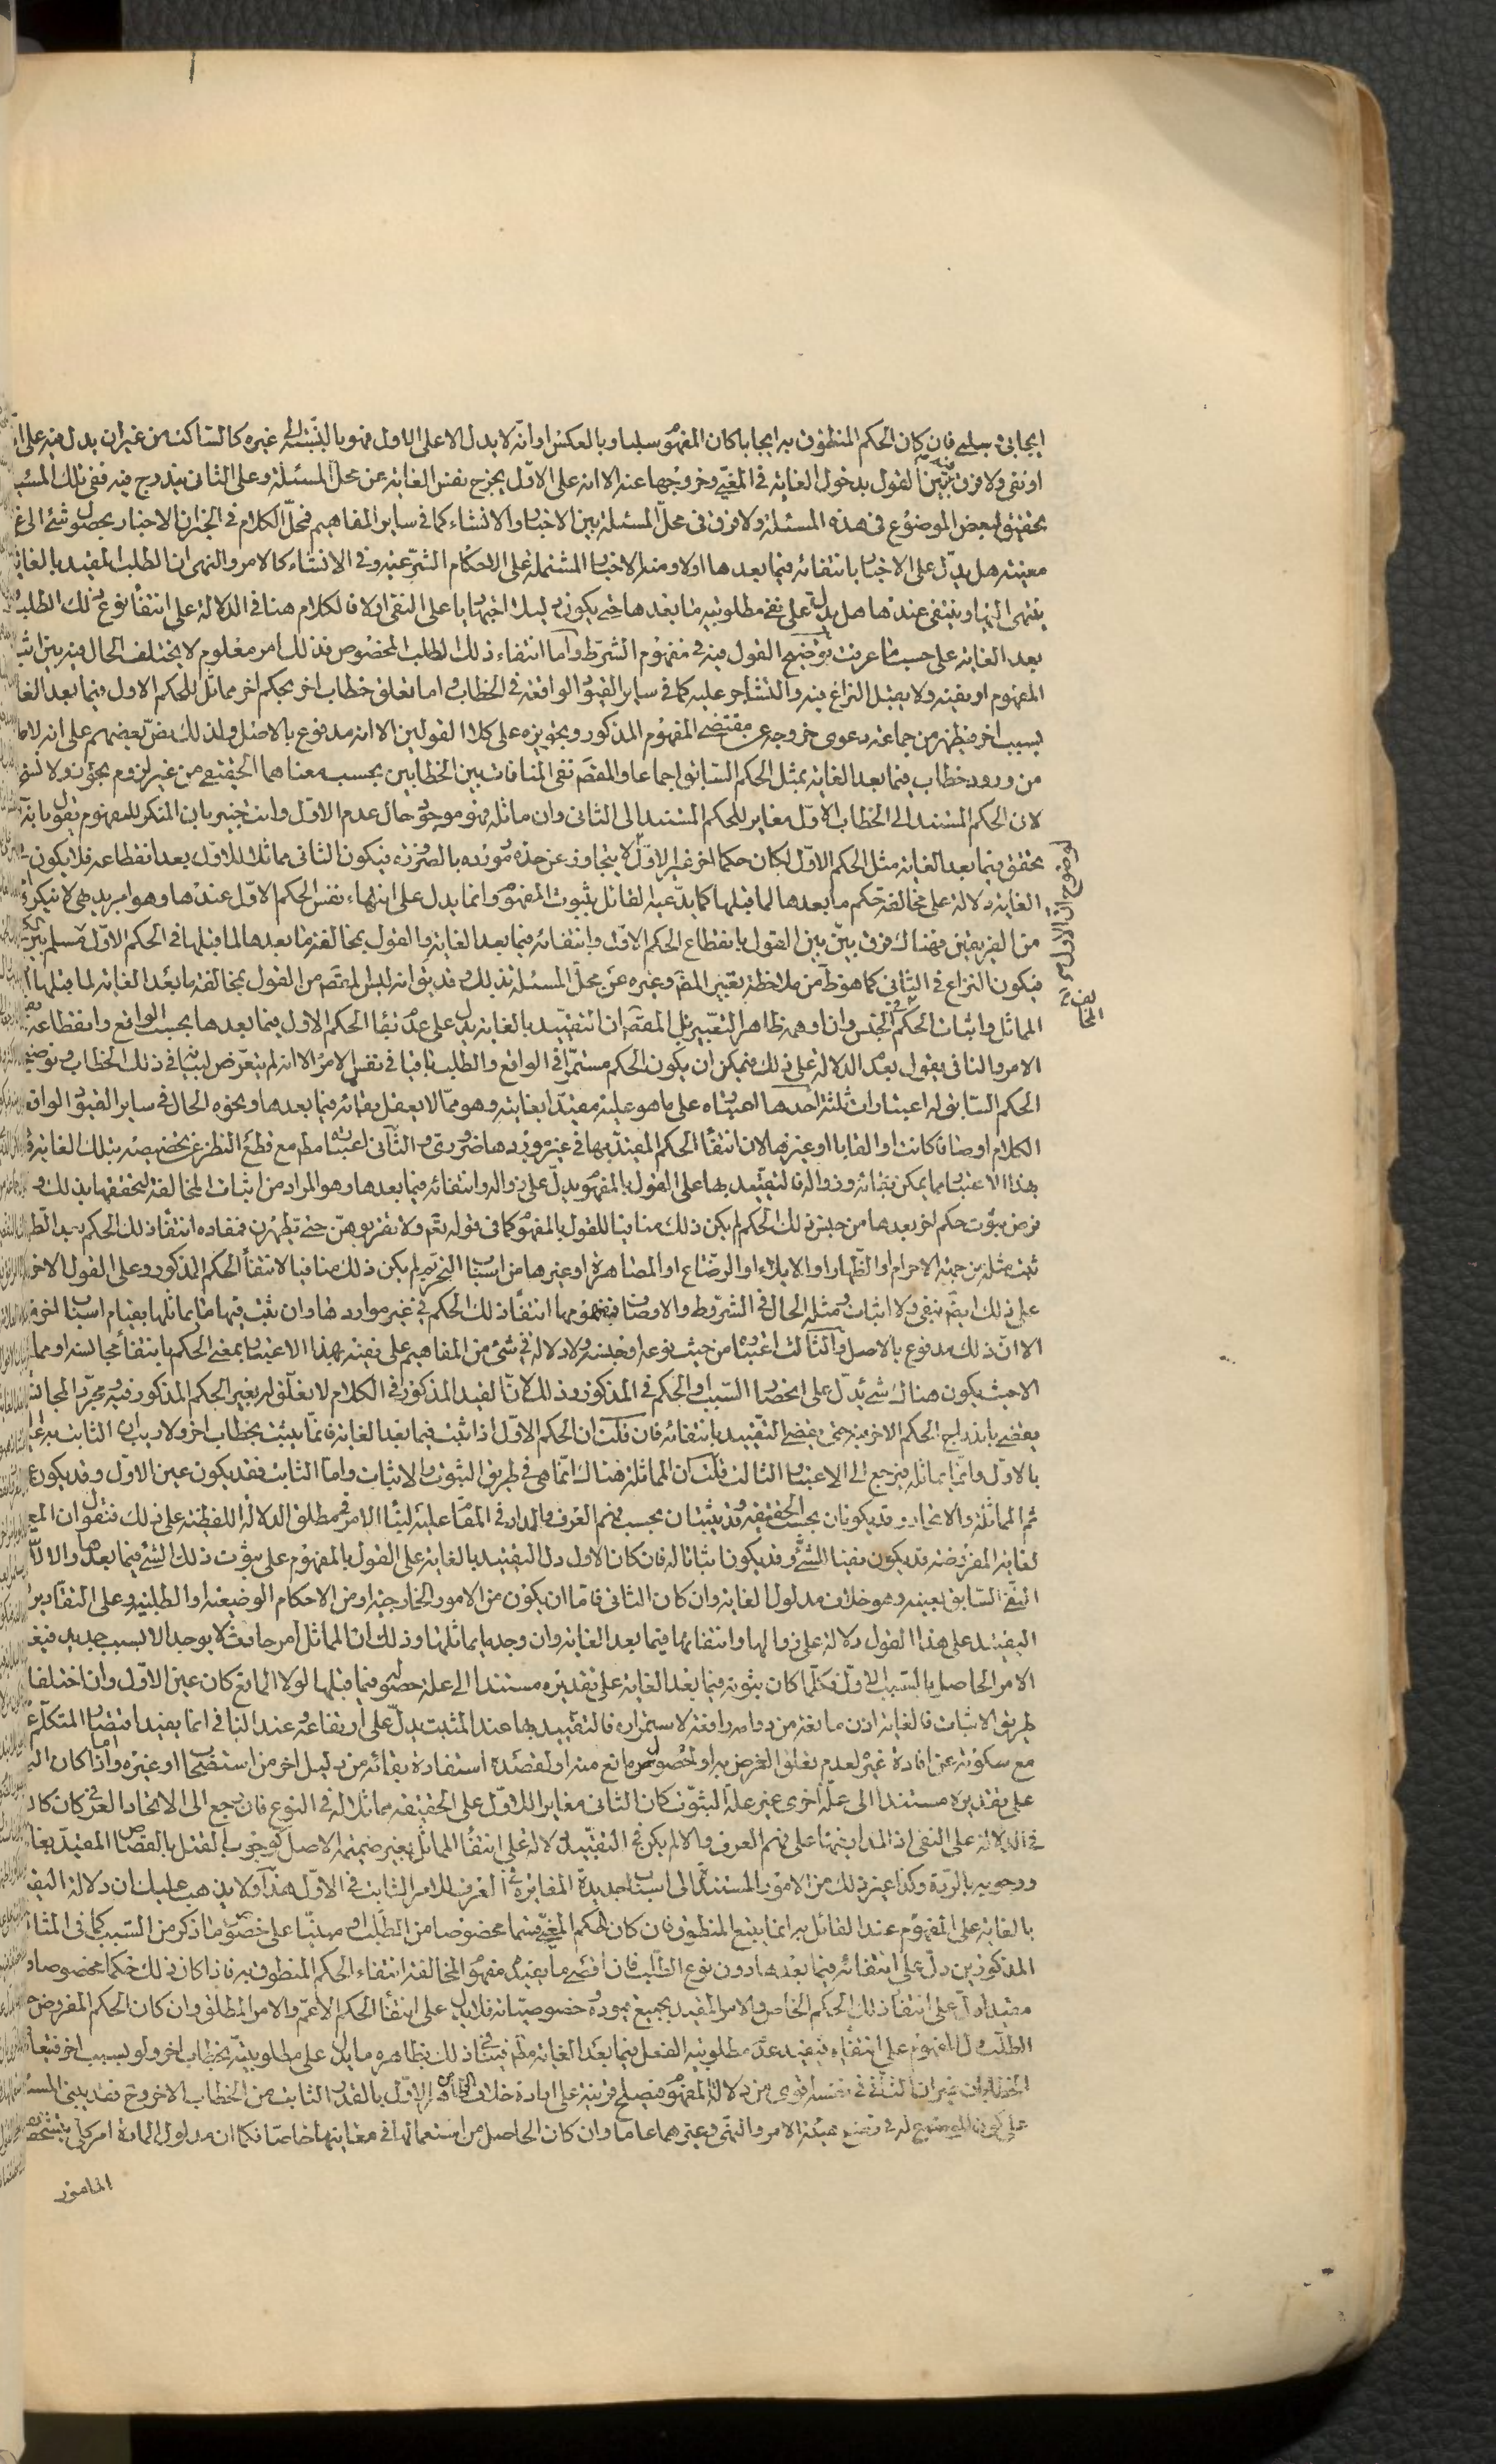 ايجابى و سلبى فان كان الحكم المنطوق به ايجابا كان المفهوم سلبا و بالعكس او انه لا يدل الا على الاول فهو بالنسبة الى غيره كالساكت من غير ان يدل فيه على
او نفى ولا فرق فيه بين القول بدخول الغاية فى المغيى و خروجها عنه الا انه على الاول يخرج نفس الغاية عن محل المسئلة و على الثانى يندرج فيه ففى تلك المسئلة
تحقيق لبعض الموضوع فى هذه المسئلة ولا فرق فى محل المسئلة بين الاخبار و الانشاء كما فى ساير المفاهيم فمحل الكلام فى الخبر ان الاخبار بحصول شئ الى
معينة هل يدل على الاخبار بانتفائه فيما بعدها اولا ومنه الاخبار المشتملة على الاحكام الشرعية و فى الانشاء كالامر و النهى ان الطلب المقيد بالغاية
ينتهى اليها و ينتفى عندها هل يدل على نفى مطلوبية ما بعدها حتى يكون دليلا اجتهاديا على النفى اولا فالكلام هنا فى الدلالة على انتفاء نوع ذلك الطلب
بعد الغاية على حسب ما عرفت توضيح القول فيه فى مفهوم الشرط و اما انتفاء ذلك الطلب المخصوص فذلك امر معلوم لا يختلف الحال فيه بين اثبات
المفهوم او نفيه ولا يعقل النزاع فيه و التشاجر عليه كما فى ساير القيود الواقعة فى الخطاب و اما تعلق خطاب اخر بحكم اخر مماثل للحكم الاول فيما بعد الغاية
بسبب اخر فيظهر من جماعة دعوى خروجه عن مقتضى المفهوم المذكور و تجويزه على كلا القولين الا انه مدفوع بالاصل و لذلك نص بعضهم على انه لا مانع
من ورود خطاب فيما بعد الغاية بمثل الحكم السابق اجماعا و المقصود نفى المنافات بين الخطابين بحسب معناهما الحقيقى من غير لزوم تجوز ولا نسخ
لان الحكم المستند الى الخطاب الاول مغاير للحكم المستند الى الثانى و ان ماثله فهو موجود حال عدم الاول و انت خبير بان المنكر للمفهوم يقول بانه لو
تحقق فيما بعد الغاية مثل الحكم الاول لكان حكما اخر غير الاول لا يتجاوز عن حده و مورده بالضرورة فيكون الثانى مماثلا للاول بعد انقطاعه فلا يكون
الغاية دلالة على مخالفة حكم ما بعدها لما قبلها كما يدعيه القائل بثبوت المفهوم و انما يدل على انتهاء نفس الحكم الاول عندها و هو امر بديهى لا ينكره
من الفريقين فهناك فرق بين بين القول بانقطاع الحكم الاول و انتفائه فيما بعد الغاية و القول بمخالفة ما بعدها لما قبلها فى الحكم الاول مسلم بين
فيكون النزاع فى الثانى كما هو ظ من ملاحظة تعبير المقم و غيره عن محل المسئلة بذلك و قد يق انه ليس المقصود من القول بمخالفة ما بعد الغاية لما قبلها
المماثل و اثبات الحكم فى الجنس و ان اوهمه ظاهر التعبير بل المقصود ان التقييد بالغاية يدل على عدم بقاء الحكم الاول فيما بعدها بحسب الواقع و انقطاعه
الامر و النافى يقول بعدم الدلالة على ذلك فيمكن ان يكون الحكم مستمرا فى الواقع و الطلب باقيا فى نفس الامر الا انه لم يتعرض لبيانه فى ذلك الخطاب و توضيحه
الحكم السابق له اعتبارات ثلثة احدها اعتباره على ما هو عليه مقيدا بغايته و هو مما لا يعقل بقائه فيما بعدها و نحوه الحال فى ساير القيود الواقعة
الكلام اوصافا كانت او القابا او غيرها لان انتفاء الحكم المقيد بها فى غير موردها ضرورى و الثانى اعتباره مطم مع قطع النظر عن تخصيصه بتلك الغاية
بهذا الاعتبار مما يمكن بقائه و زواله فالتقييد بها على القول بالمفهوم يدل على زواله و انتفائه فيما بعدها و هو المراد من اثبات المخالفة لتحققها بذلك و
فرض ثبوت حكم اخر بعدها من جنس ذلك الحكم لم يكن ذلك منافيا للقول بالمفهوم كما فى قوله تعم ولا تقربوهن حتى يطهرن فمفاده انتفاء ذلك الحكم بعد الطهر
ثبت مثله من جهة الاحرام او الظهار او الايلاء او الرضاع او المصاهرة او غيرها من اسباب التحريم لم يكن ذلك منافيا لانتفاء الحكم المذكور و على القول الاخر
على ذلك ايضم بنفى ولا اثبات و مثله الحال فى الشروط و الاوصاف فمفهومها انتفاء ذلك الحكم فى غير مواردها و ان ثبت فيها ما يماثلها بقيام اسباب اخر
الا ان ذلك مدفوع بالاصل و الثالث اعتباره من حيث نوعه او جنسه ولا دلالة فى شئ من المفاهيم على نفيه بهذا الاعتبار بمعنى الحكم بانتفاء مجانسه او مماثله
الا حيث يكون هناك شئ يدل على انحصار السبب او الحكم فى المذكور و ذلك لان القيد المذكور فى الكلام لا تعلق له بغير الحكم المذكور فيه و مجرد المجانسة
يقضى باندراج الحكم الاخر فيه حتى يقضى التقييد بانتفائه فان قلت ان الحكم الاول اذا ثبت فيما بعد الغاية فانما يثبت بخطاب اخر ولا ريب ان الثابت به غير
بالاول و انما يماثله فيرجع الى الاعتبار الثالث قلت ان المماثلة هناك انما هى فى طريق الثبوت و الاثبات و اما الثابت فقد يكون عين الاول و قد يكون
ثم المماثلة و الاتحاد قد يكونان بحسب الحقيقة و قد يثبتان بحسب فهم العرف و المدار فى المقام عليه لبناء الامر فى مطلق الدلالة اللفظية على ذلك فنقول ان
لغاية المفروضة قد يكون نفيا للشئ و قد يكون اثباتا له فان كان الاول دل التقييد بالغاية على القول بالمفهوم على ثبوت ذلك الشئ فيما بعدها و الا
النفى السابق بعينه و هو خلاف مدلول الغاية و ان كان الثانى فاما ان يكون من الامور الخارجية او من الاحكام الوضعية او الطلبية و على التقادير
التقييد على هذا القول دلالة على زوالها و انتفائها فيما بعد الغاية و ان وجد ما يماثلها و ذلك ان المماثل امر حادث لا يوجد الا بسبب جديد فيغاير
الامر الحاصل بالسبب الاول فكلما كان ثبوته فيما بعد الغاية على تقديره مستندا الى علة حصوله فيما قبلها لولا المانع كان عين الاول و ان اختلفا
طريق الاثبات فالغاية اذن مانعة من دوامه رافعة لاستمراره فالتقييد بها عند المثبت يدل على ارتفاعه و عند النافى انما يفيد اقتصار المتكلم
مع سكوته عن افادة غيره لعدم تعلق الغرض به او لحصول مانع منه او لقصده استفادة بقائه من دليل اخر من استصحاب او غيره و اما اذا كان
على تقديره مستندا الى علة اخرى غير علة الثبوت كان الثانى مغايرا للاول على الحقيقة مماثلا له فى النوع فان رجع الى الاتحاد العرفى كان كالاول
فى الدلالة على النفى اذ المدار فيها على فهم العرف و الا لم يكن فى التقييد دلالة على انتفاء المماثل بغير ضميمة الاصل كوجوب القتل بالقصاص المقيد بغاية
و وجوبه بالردة و كذا غير ذلك من الامور المستندة الى اسباب جديدة المغايرة فى العرف للامر الثابت فى الاول هذا ولا يذهب عليك ان دلالة التقييد
بالغاية على المفهوم عند القائل به انما يتبع المنطوق فان كان الحكم المغيى فيهما مخصوصا من الطلب او مبنيا على خصوص ما ذكر من السبب كما فى المثالين
المذكورين دل على انتفائه فيما بعدها دون نوع الطلب فان اقصى ما يفيد مفهوم المخالفة انتفاء الحكم المنطوق به فاذا كان ذلك حكما مخصوصا او
مقيدا دل على انتفاء ذلك الحكم الخاص و الامر المقيد بجميع قيوده و خصوصياته فلا يدل على انتفاء الحكم الاعم و الامر المطلق و ان كان الحكم المفروض
الطلب دل المفهوم على انتفائه فيفيد عدم مطلوبية الفعل فيما بعد الغاية مطم فينافى ذلك بظاهره ما يدل على مطلوبيته بخطاب اخر ولو بسبب اخر فيتعارض
الخطابان غير ان الثانى فى نفسه اقوى من دلالة المفهوم فيصلح قرينة على ارادة خلاف الظاهر من الاول بالقدر الثابت من الخطاب الاخر و ح فقد يبنى المسئلة
على كون الموضوع له فى وضع هيئة الامر و النهى و غيرهما عاما و ان كان الحاصل من استعمالها فى معانيها خاصا فكما ان مدلول المادة امر كلى يتشخص
المامور